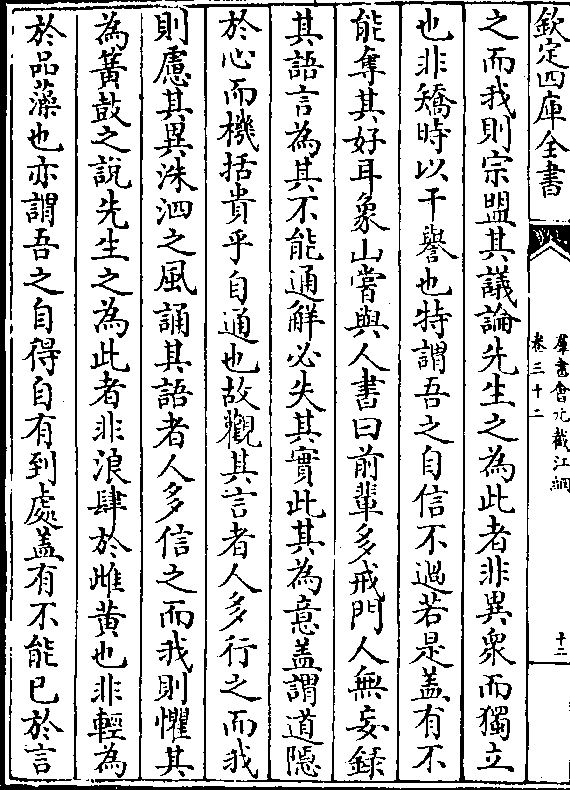 欽定四庫全書
羣書會元截江網
卷三十二
十二
之而我則宗盟其議論先生之為此者非異衆而獨立
也非矯時以干譽也特謂吾之自信不過若是盖有不
能奪其好耳象山嘗與人書曰前輩多戒門人無妄録
其語言為其不能通解必失其實此其為意盖謂道隠
於心而機括貴乎自通也故觀其言者人多行之而我
則慮其異洙泗之風誦其語者人多信之而我則懼其
為簧鼓之說先生之為此者非浪肆於雌黄也非輕為
於品藻也亦謂吾之自得自有到處盖有不能已於言